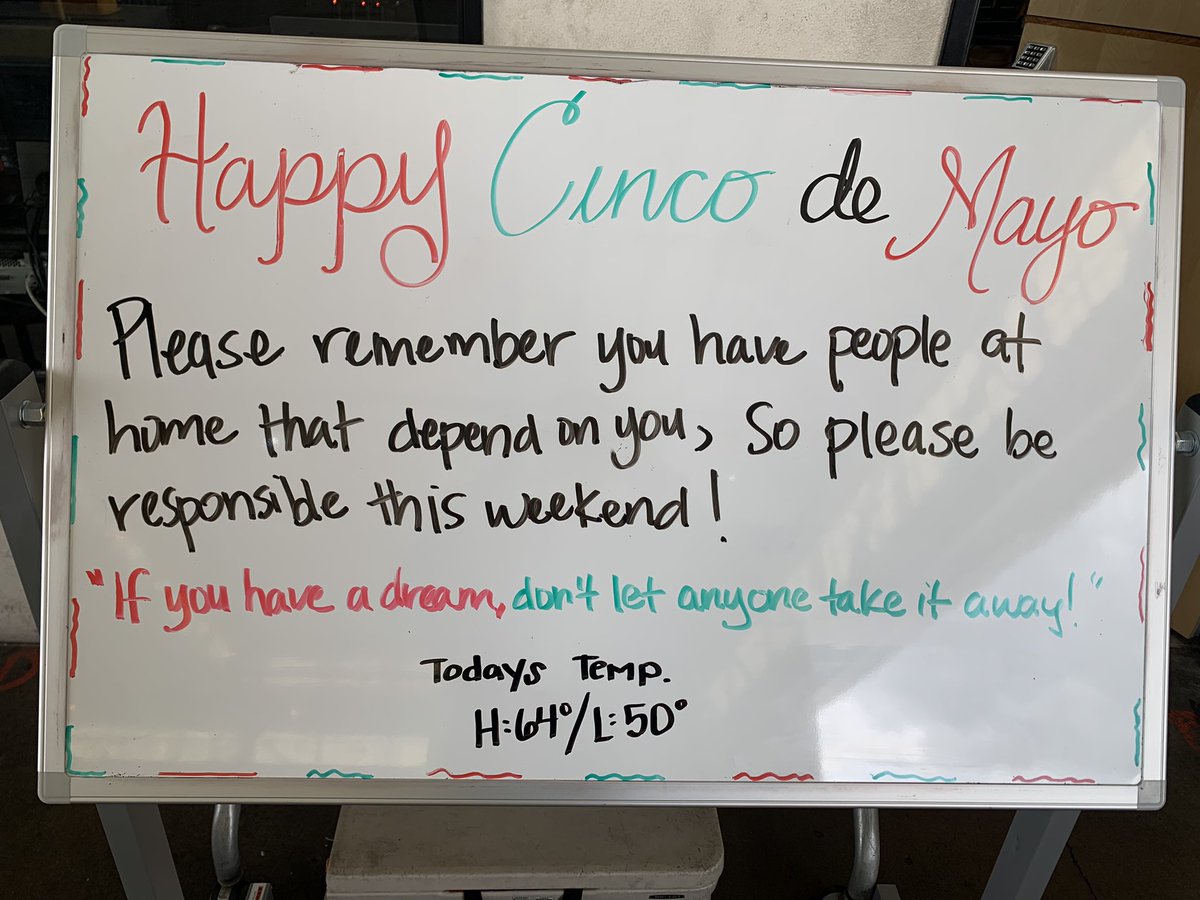 Happy Cinco de Mayo
Please remember you have people at
home that depend on you, So please be
responsible this weekend!
"If you have a dream, don't let anyone take it away!"
Todays Temp.
H:64°/L:50°